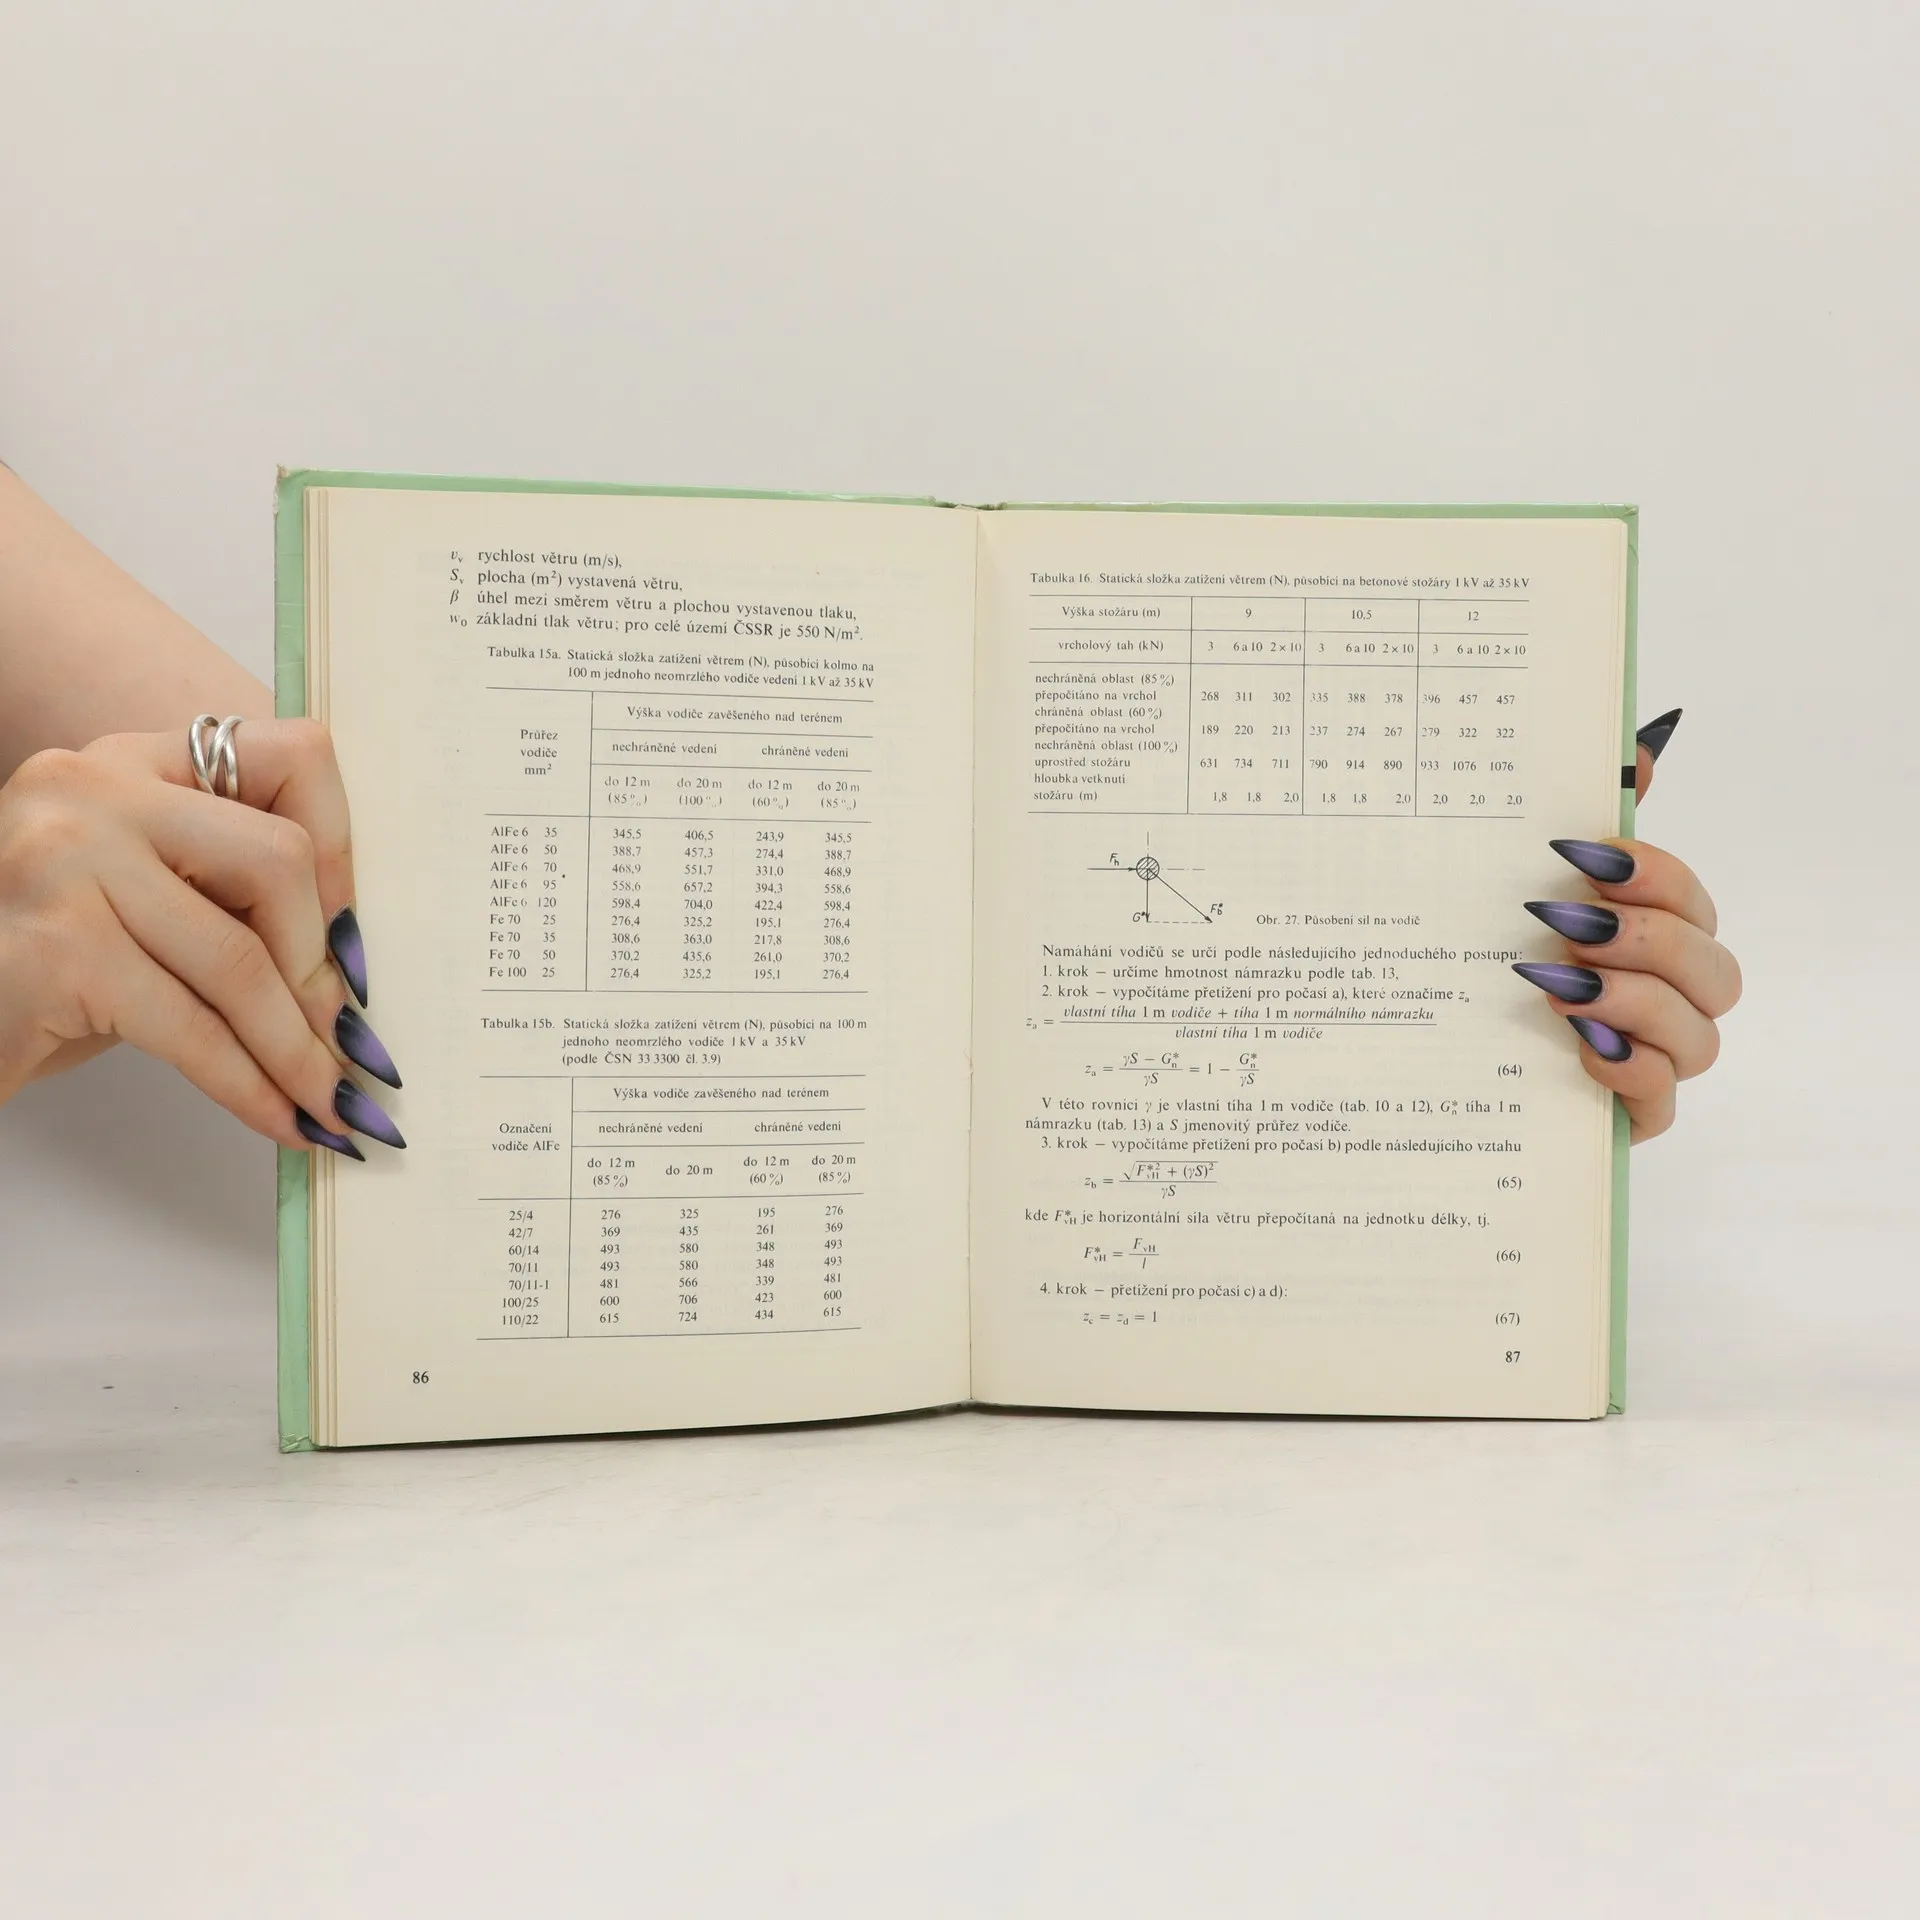 v_v rychlost větru (m/s),
S_v plocha (m²) vystavená větru,
β úhel mezi směrem větru a plochou vystavenou tlaku,
w₀ základní tlak větru; pro celé území ČSSR je 550 N/m².
Tabulka 15a. Statická složka zatížení větrem (N), působící kolmo na
100 m jednoho neomrzlého vodiče vedení 1 kV až 35 kV
Průřez
vodiče
mm²
Výška vodiče zavěšeného nad terénem
nechráněné vedení chráněné vedení
do 12 m do 20 m do 12 m do 20 m
(85 %) (100 %) (60 %) (85 %)
AlFe 6 35 345,5 406,5 243,9 345,5
AlFe 6 50 388,7 457,3 274,4 388,7
AlFe 6 70 468,9 551,7 331,0 468,9
AlFe 6 95 558,6 657,2 394,3 558,6
AlFe 6 120 598,4 704,0 422,4 598,4
Fe 70 25 276,4 325,2 195,1 276,4
Fe 70 35 308,6 363,0 217,8 308,6
Fe 70 50 370,2 435,6 261,0 370,2
Fe 100 25 276,4 325,2 195,1 276,4
Tabulka 15b. Statická složka zatížení větrem (N), působící na 100 m
jednoho neomrzlého vodiče 1 kV a 35 kV
(podle ČSN 33 3300 čl. 3.9)
Označení
vodiče AlFe
Výška vodiče zavěšeného nad terénem
nechráněné vedení chráněné vedení
do 12 m do 20 m do 12 m do 20 m
(85 %) (60 %) (85 %)
25/4 276 325 195 276
42/7 369 435 261 369
60/14 493 580 348 493
70/11 493 580 348 493
70/11-1 481 566 339 481
100/25 600 706 423 600
110/22 615 724 434 615
86
Tabulka 16. Statická složka zatížení větrem (N), působící na betonové stožáry 1 kV až 35 kV
Výška stožáru (m) 9 10,5 12
vrcholový tah (kN) 3 6 a 10 2 × 10 3 6 a 10 2 × 10 3 6 a 10 2 × 10
nechráněná oblast (85 %)
přepočítáno na vrchol 268 311 302 335 388 378 396 457 457
chráněná oblast (60 %)
přepočítáno na vrchol 189 220 213 237 274 267 279 322 322
nechráněná oblast (100 %)
uprostřed stožáru 631 734 711 790 914 890 933 1076 1076
hloubka vetknutí
stožáru (m) 1,8 1,8 2,0 1,8 1,8 2,0 2,0 2,0 2,0
F_h
G* F_b*
Obr. 27. Působení sil na vodič
Namáhání vodičů se určí podle následujícího jednoduchého postupu:
1. krok — určíme hmotnost námrazku podle tab. 13,
2. krok — vypočítáme přetížení pro počasí a), které označíme z_a
z_a = vlastní tíha 1 m vodiče + tíha 1 m normálního námrazku
vlastní tíha 1 m vodiče
z_a = (γS − G_n*)/(γS) = 1 − G_n*/(γS) (64)
V této rovnici γ je vlastní tíha 1 m vodiče (tab. 10 a 12), G_n* tíha 1 m
námrazku (tab. 13) a S jmenovitý průřez vodiče.
3. krok — vypočítáme přetížení pro počasí b) podle následujícího vztahu
z_b = √(F_vH*² + (γS)²)/(γS) (65)
kde F_vH* je horizontální síla větru přepočítaná na jednotku délky, tj.
F_vH* = F_vH/l (66)
4. krok — přetížení pro počasí c) a d):
z_c = z_d = 1 (67)
87